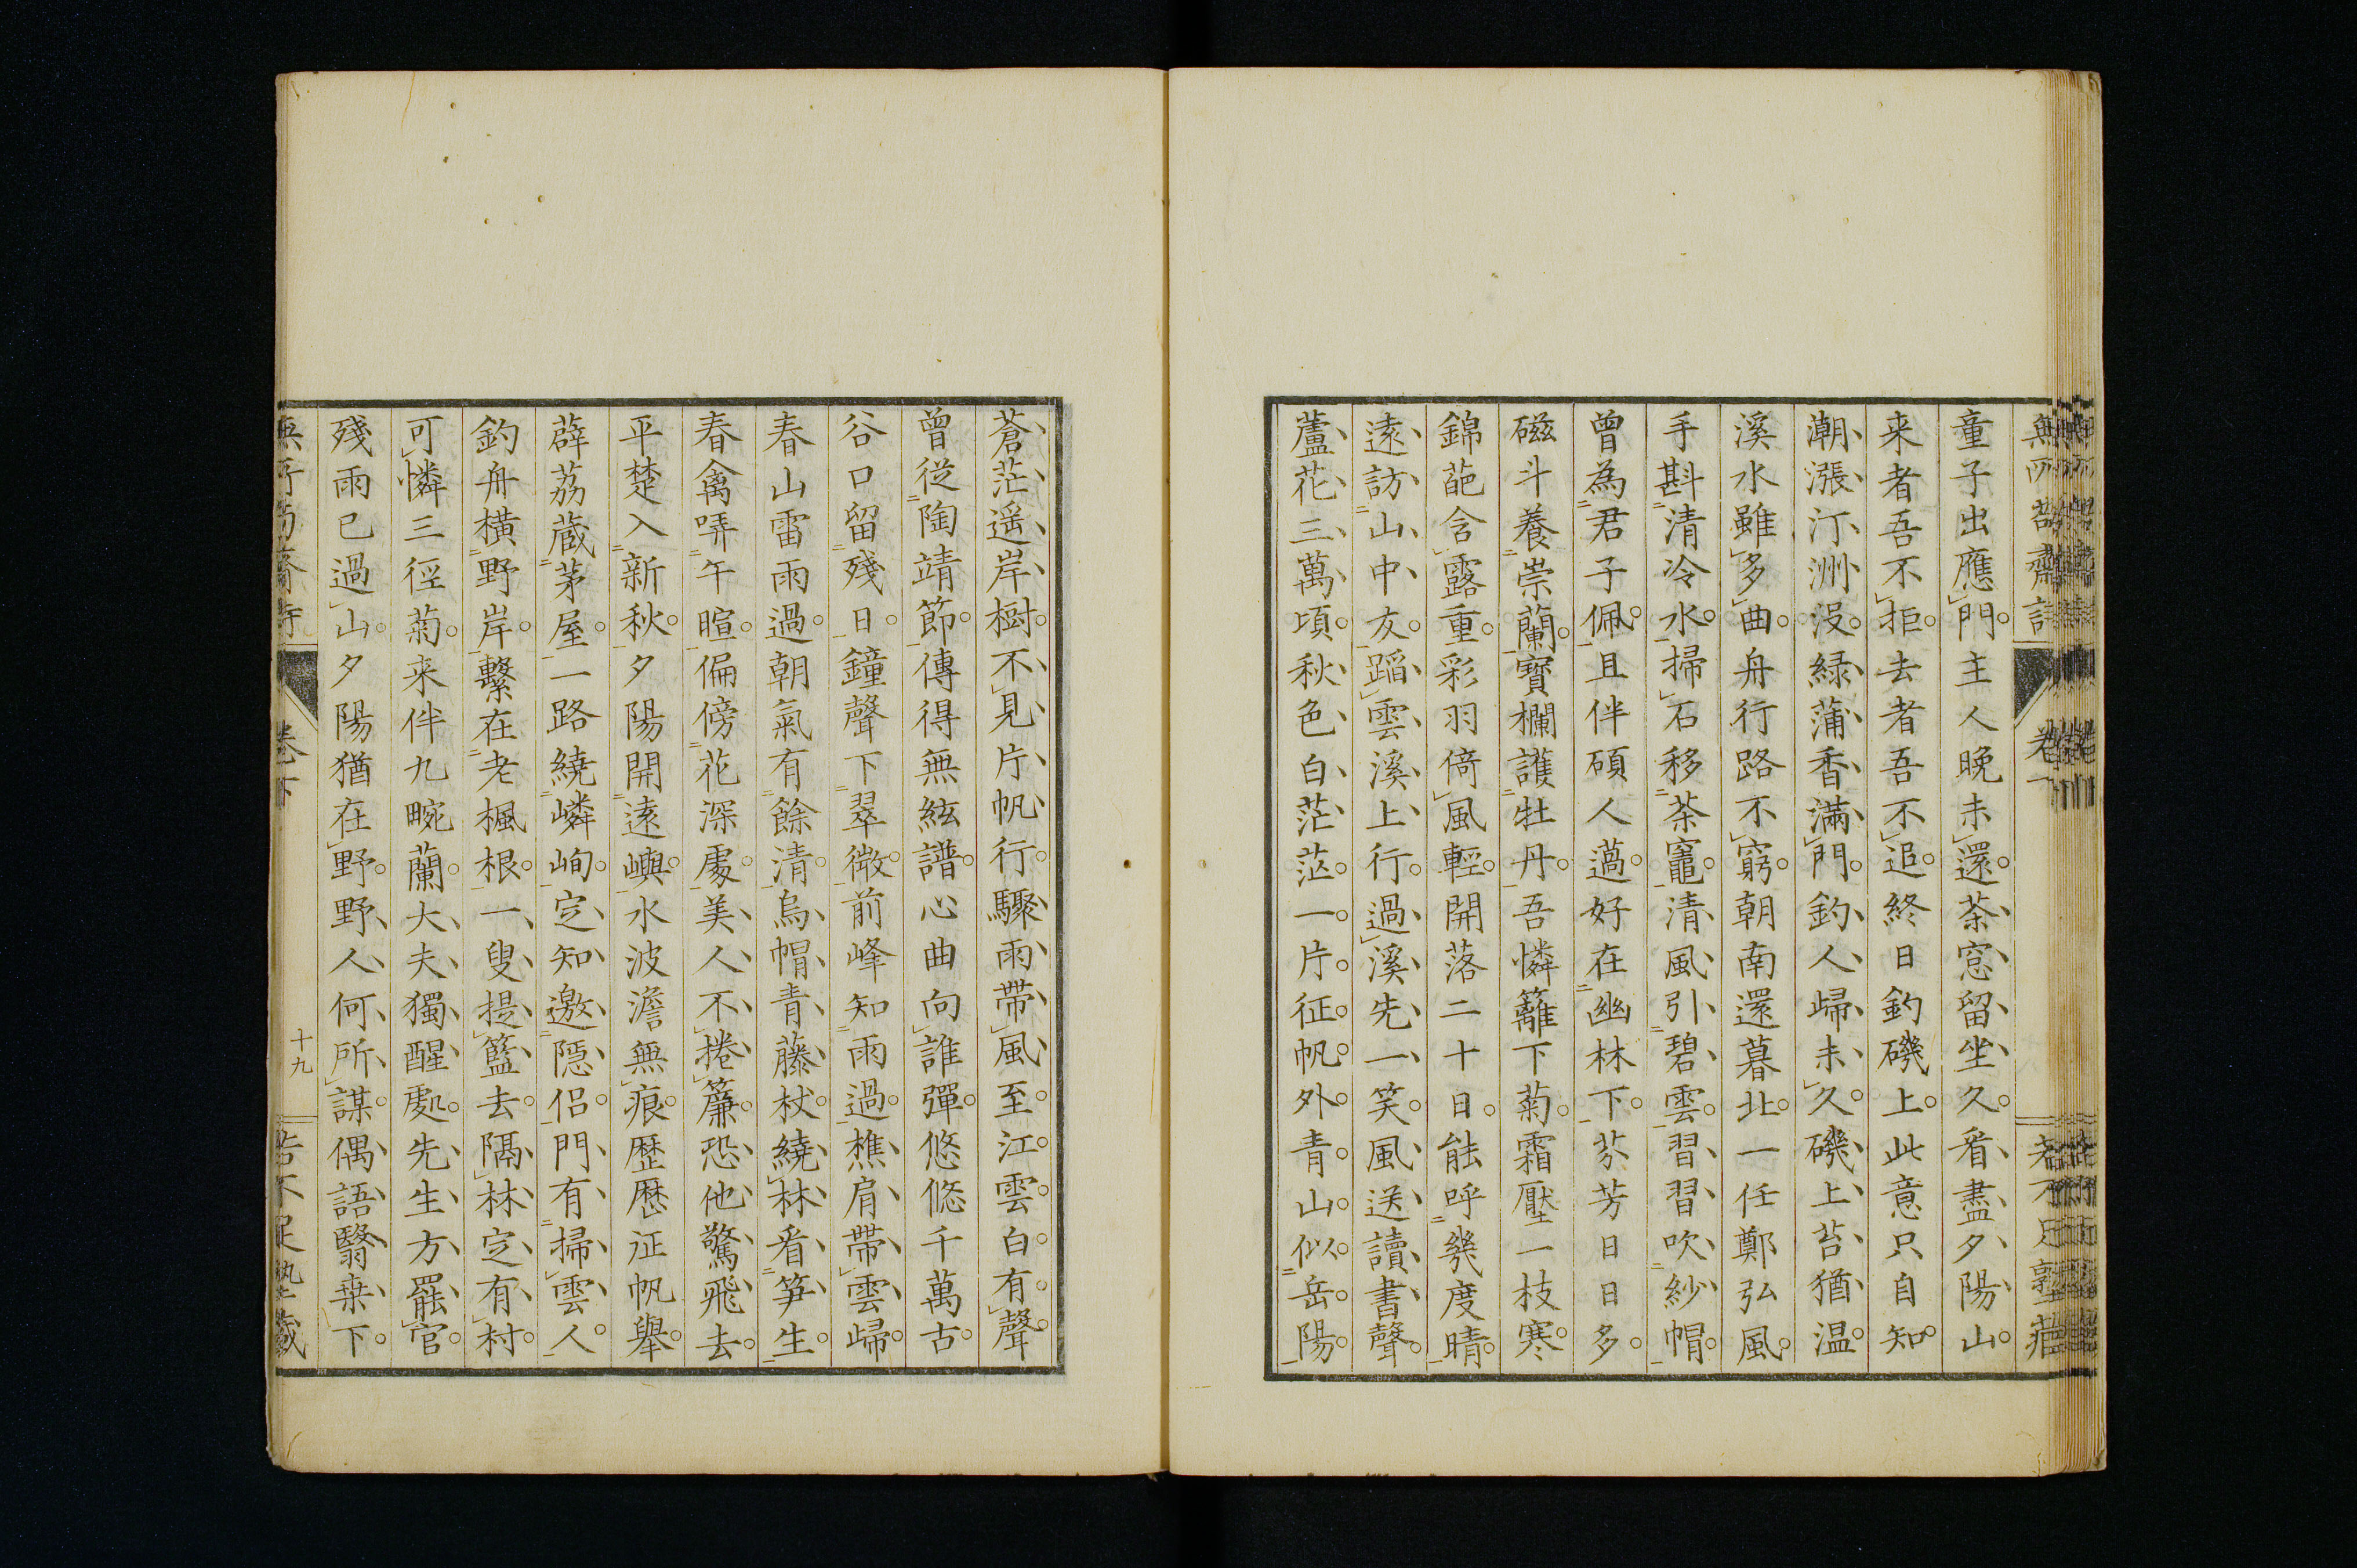 童子出應門主人晚未還茶窓留坐久看盡夕陽山
来者吾不拒去者吾不追終日釣磯上此意只自知
潮漲汀洲没緑蒲香滿門釣人歸未久磯上苔猶温
溪水雖多曲舟行路不窮朝南還暮北一任鄭弘風
手斟清冷水掃石移茶竈清風引碧雲習習吹紗帽
曾為君子佩且伴碩人薖好在幽林下芬芳日日多
磁斗養崇蘭寶欄護牡丹吾憐籬下菊霜壓一枝寒
錦葩含露重彩羽倚風輕開落二十日能呼幾度晴
遠訪山中友蹈雲溪上行過溪先一笑風送讀書聲
蘆花三萬頃秋色白茫茫一片征帆外青山似岳陽
蒼茫遥岸樹不見片帆行驟雨帶風至江雲白有聲
曾従陶靖節傳得無絃譜心曲向誰彈悠悠千萬古
谷口留殘日鐘聲下翠微前峰知雨過樵肩帶雲歸
春山雷雨過朝氣有餘清烏帽青藤杖繞林看笋生
春禽哢午暄偏傍花深處美人不捲簾恐他驚飛去
平楚入新秋夕陽開遠嶼水波澹無痕歴歴征帆舉
薜荔蔵茅屋一路繞嶙峋定知邀隱侶門有掃雲人
釣舟横野岸繋在老楓根一叟提籃去隔林定有村
可憐三徑菊来伴九畹蘭大夫獨醒處先生方罷官
殘雨已過山夕陽猶在野野人何所謀偶語翳桒下
卷下
十九